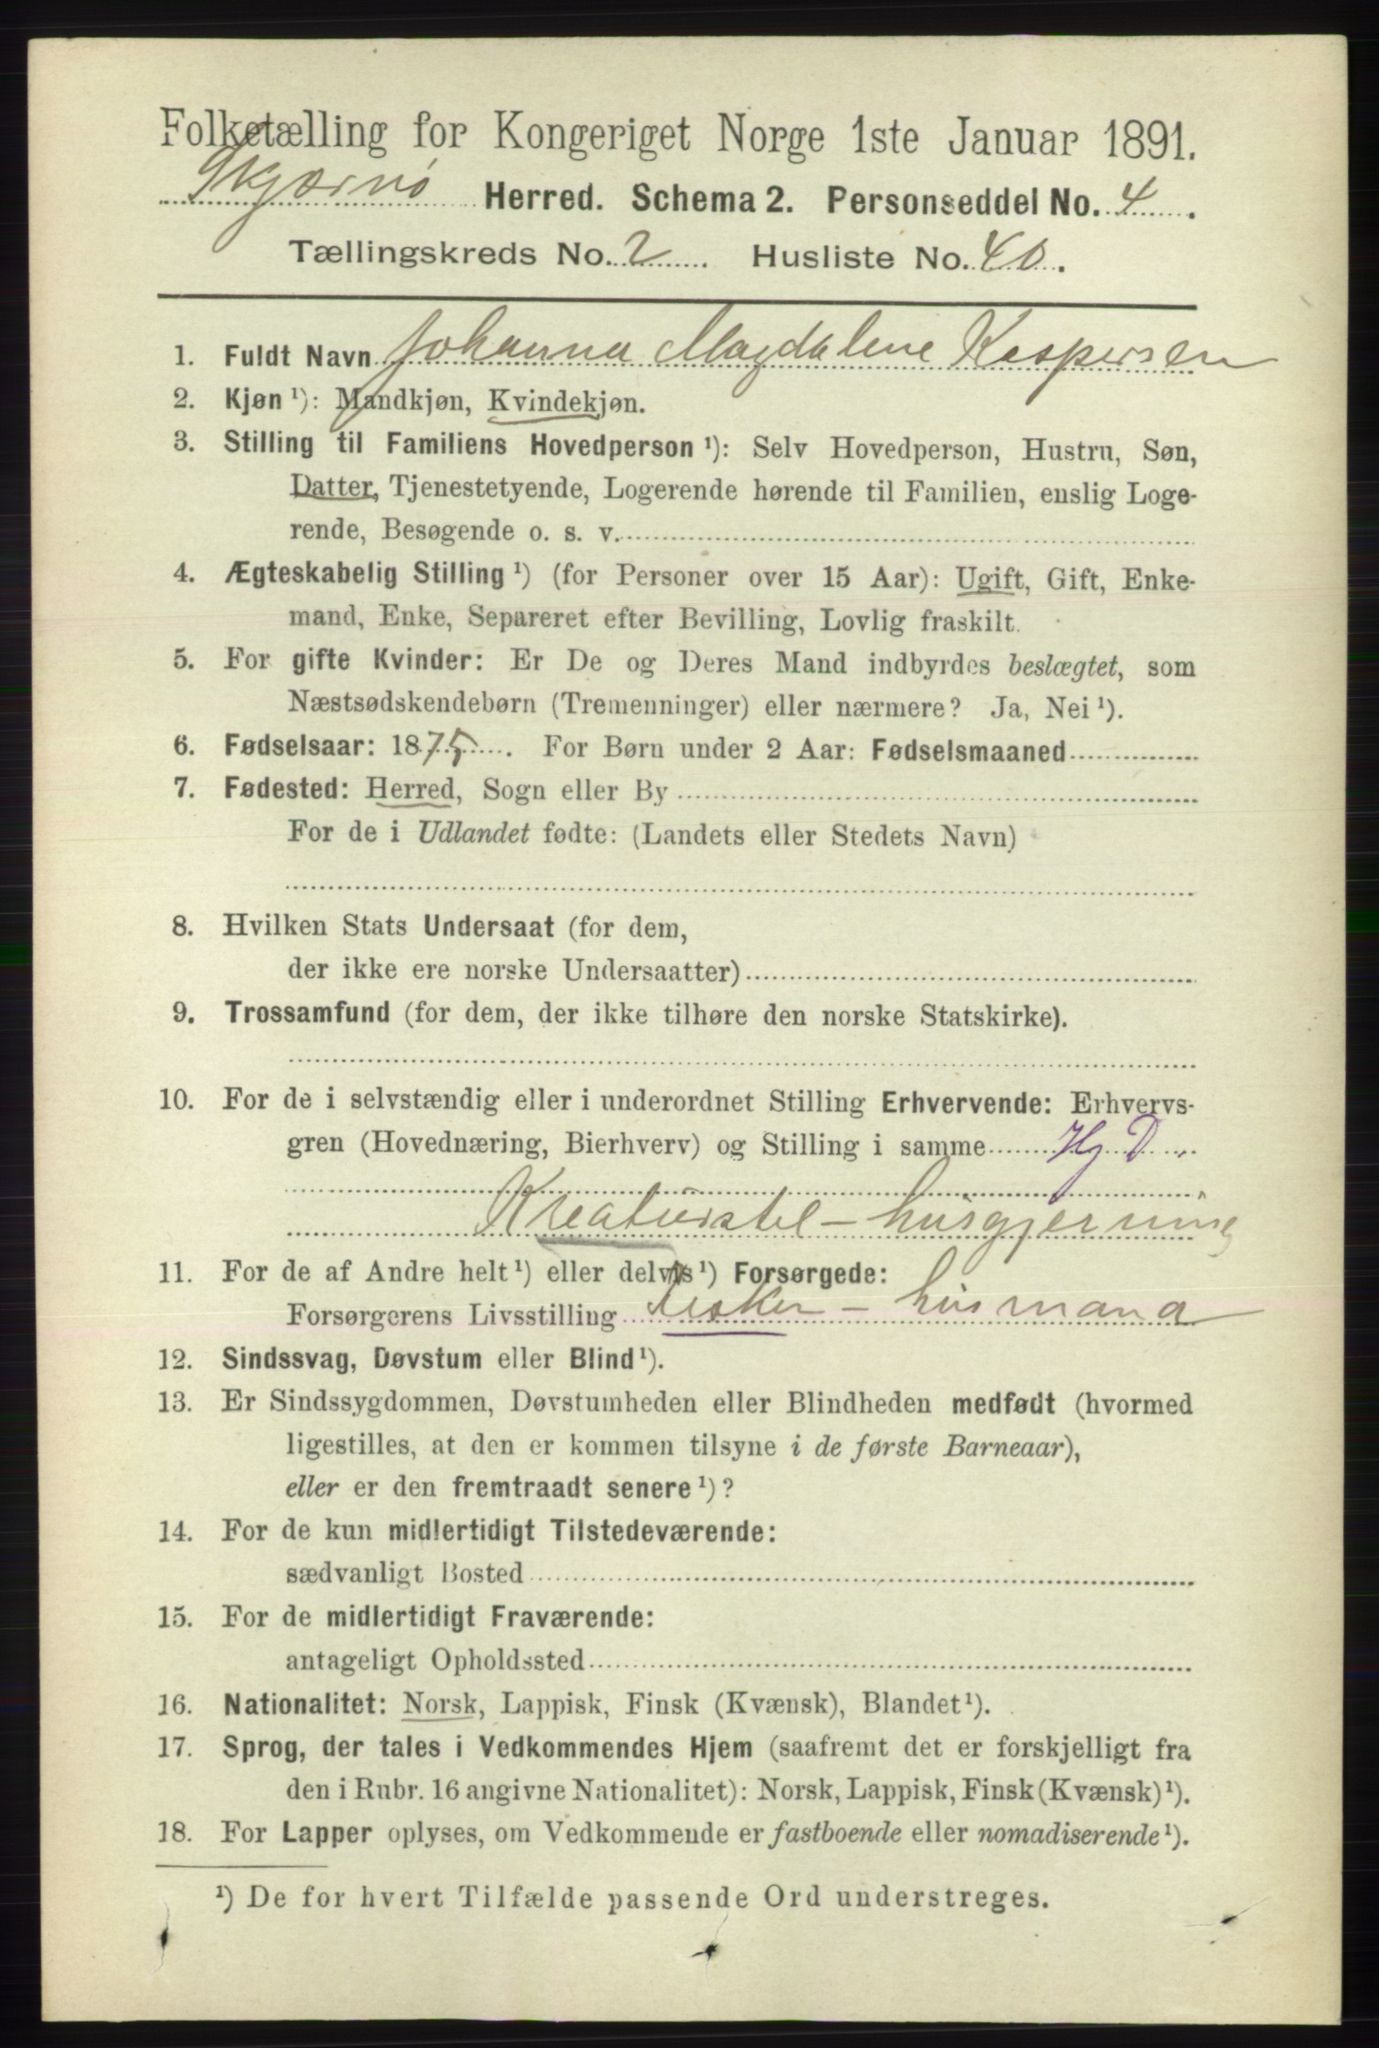 Folketælling for Kongeriget Norge 1ste Januar 1891.
Skjærvø Herred. Schema 2. Personseddel No. 4.
Tællingskreds No. 2. Husliste No. 40.
1. Fuldt Navn Johanna Magdalene Kaspersen
2. Kjøn ¹): Mandkjøn, Kvindekjøn.
3. Stilling til Familiens Hovedperson ¹): Selv Hovedperson, Hustru, Søn,
Datter, Tjenestetyende, Logerende hørende til Familien, enslig Loge-
rende, Besøgende o. s. v.
4. Ægteskabelig Stilling ¹) (for Personer over 15 Aar): Ugift, Gift, Enke-
mand, Enke, Separeret efter Bevilling, Lovlig fraskilt.
5. For gifte Kvinder: Er De og Deres Mand indbyrdes beslægtet, som
Næstsødskendebørn (Tremenninger) eller nærmere? Ja, Nei ¹).
6. Fødselsaar: 1875. For Børn under 2 Aar: Fødselsmaaned
7. Fødested: Herred, Sogn eller By
For de i Udlandet fødte: (Landets eller Stedets Navn)
8. Hvilken Stats Undersaat (for dem,
der ikke ere norske Undersaatter)
9. Trossamfund (for dem, der ikke tilhøre den norske Statskirke).
10. For de i selvstændig eller i underordnet Stilling Erhvervende: Erhvervs-
gren (Hovednæring, Bierhverv) og Stilling i samme Hj D.
Kreaturstel - husgjerning
11. For de af Andre helt ¹) eller delvis ¹) Forsørgede:
Forsørgerens Livsstilling fisker - husmand
12. Sindssvag, Døvstum eller Blind ¹).
13. Er Sindssygdommen, Døvstumheden eller Blindheden medfødt (hvormed
ligestilles, at den er kommen tilsyne i de første Barneaar),
eller er den fremtraadt senere ¹)?
14. For de kun midlertidigt Tilstedeværende:
sædvanligt Bosted
15. For de midlertidigt Fraværende:
antageligt Opholdssted
16. Nationalitet: Norsk, Lappisk, Finsk (Kvænsk), Blandet ¹).
17. Sprog, der tales i Vedkommendes Hjem (saafremt det er forskjelligt fra
den i Rubr. 16 angivne Nationalitet): Norsk, Lappisk, Finsk (Kvænsk) ¹).
18. For Lapper oplyses, om Vedkommende er fastboende eller nomadiserende ¹).
¹) De for hvert Tilfælde passende Ord understreges.